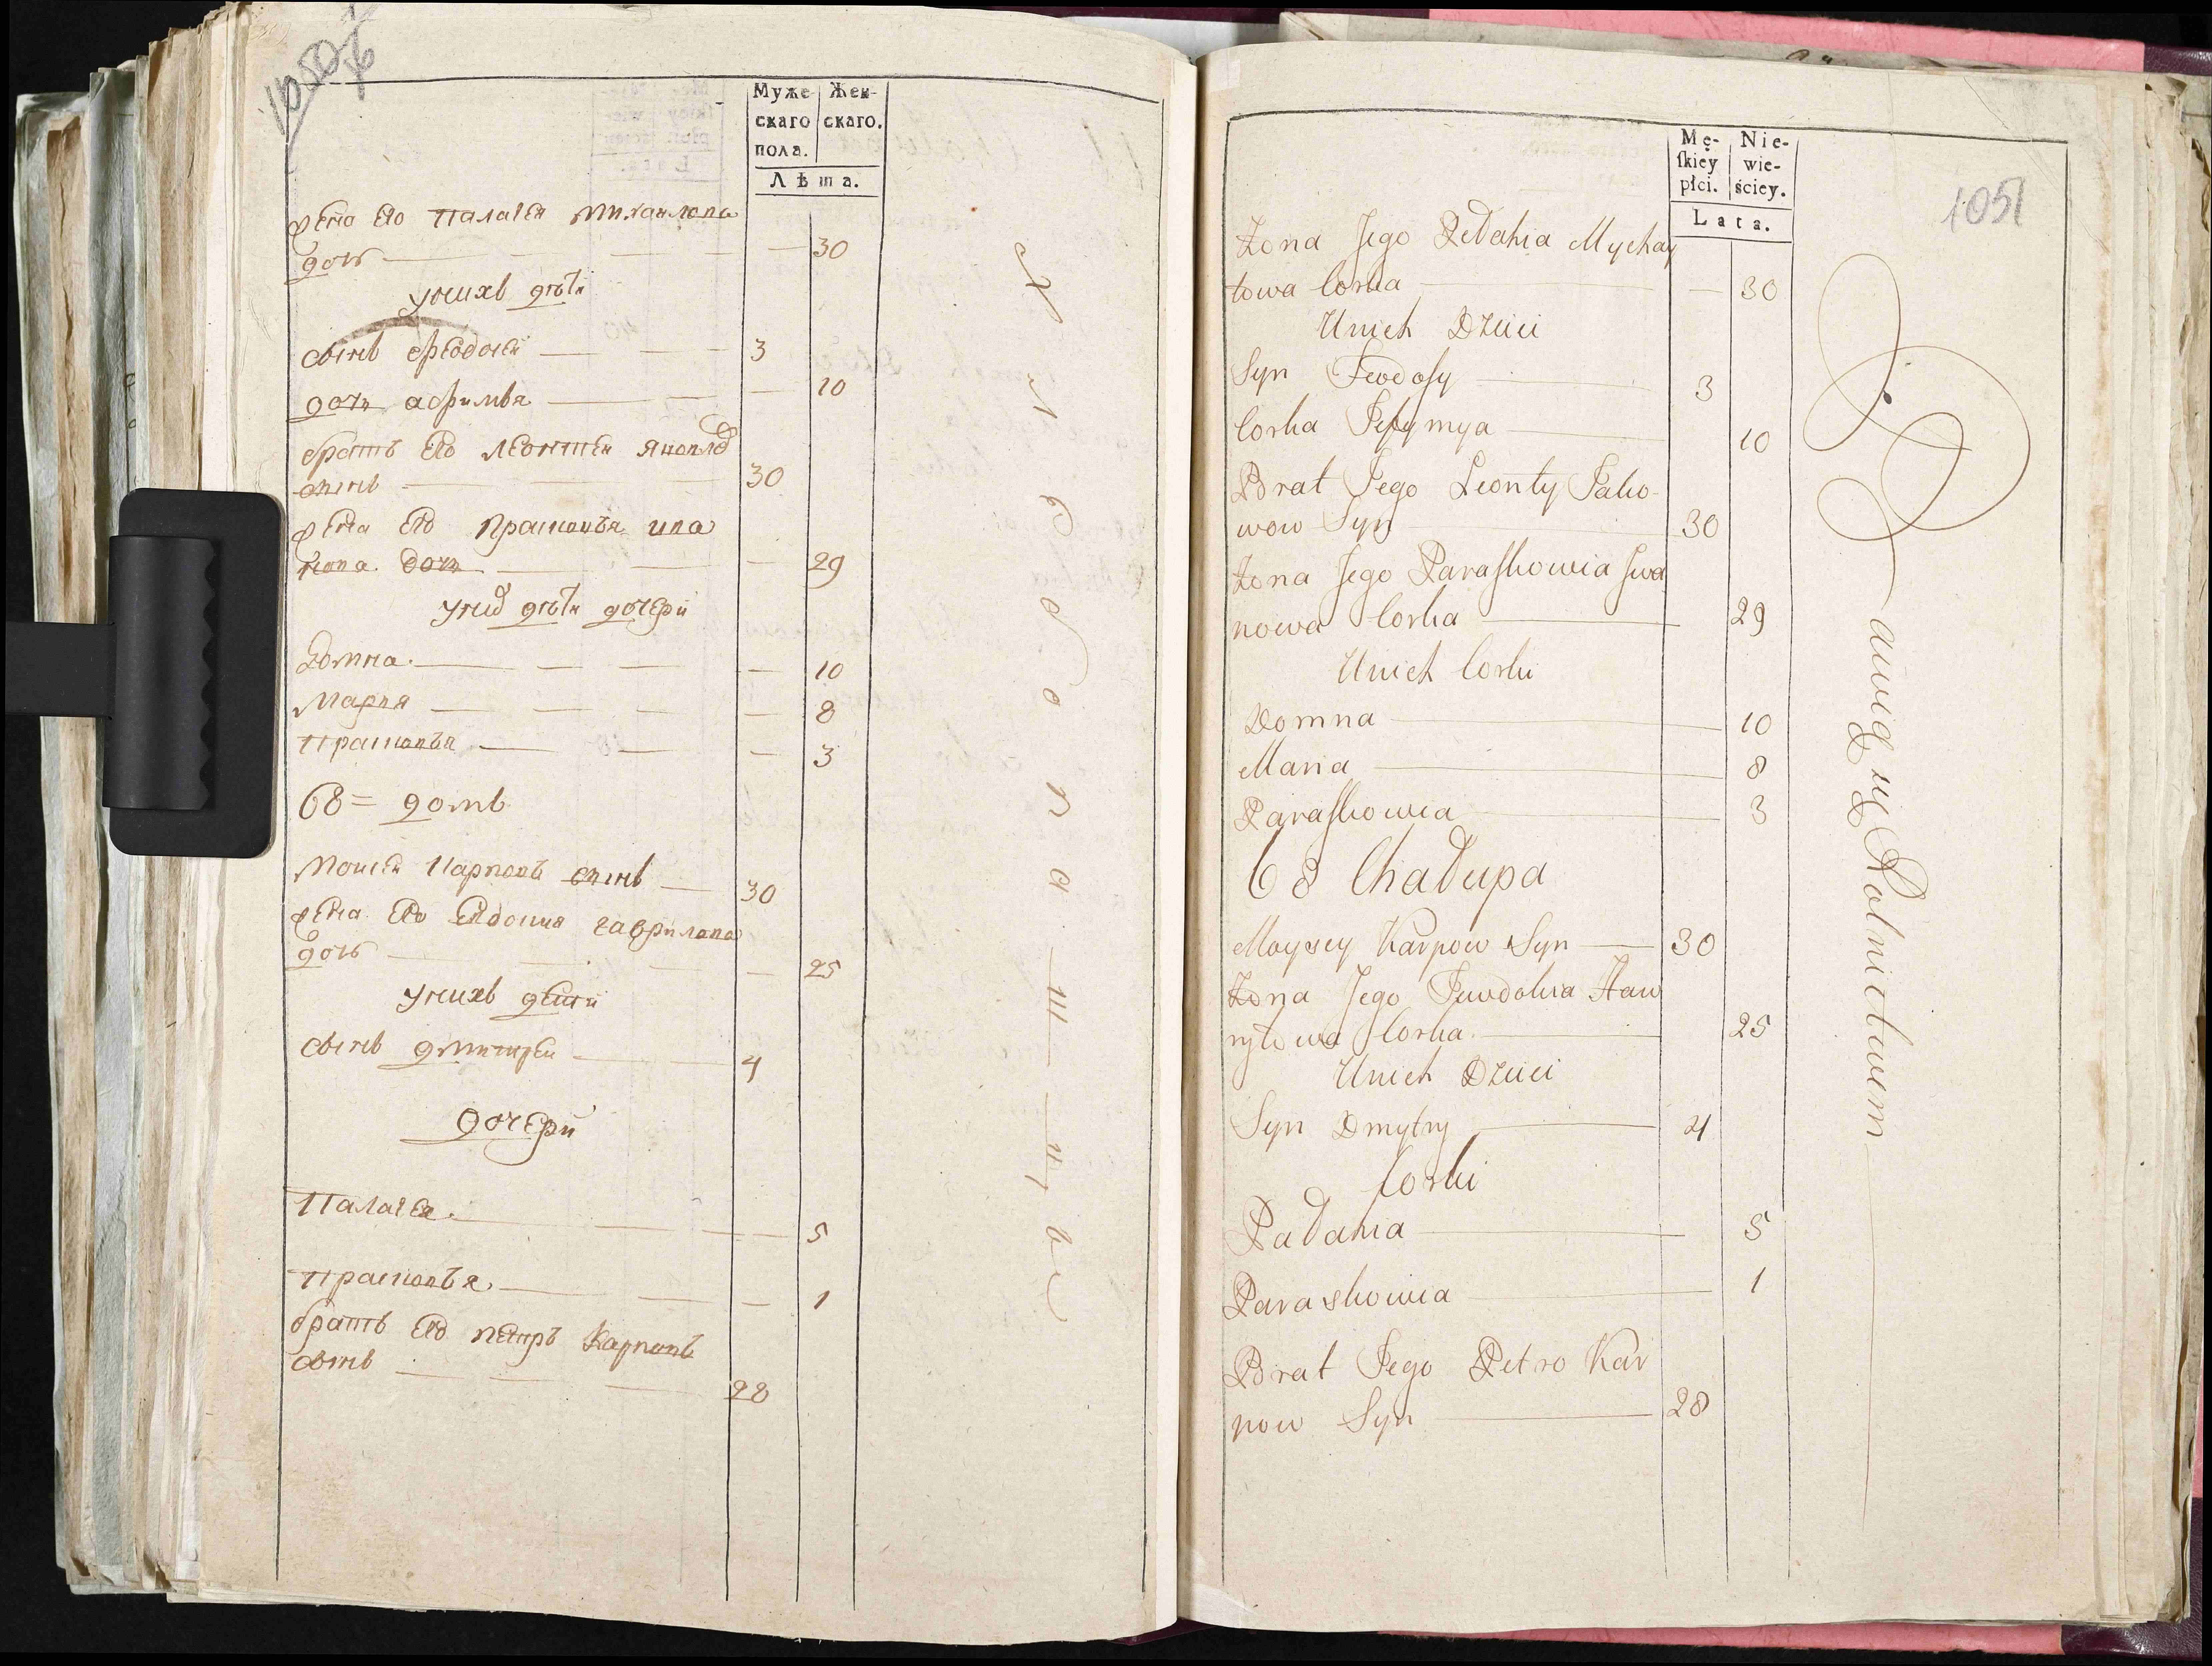 Муже-
скаго
пола.
Жен-
скаго.
Лѣта.
жена его Палагея Михаилова
дочь — 30
у нихъ дѣти
сынъ Феодосей 3
дочь Афимья — 10
братъ его Леонтей Яковлев
сынъ 30
жена его Прасковья Ива
нова дочь — 29
у них дѣти дочери
Домна — 10
Мария — 8
Прасковья — 3
68 = домъ
Моисей Карповъ сынъ 30
жена его Евдокия Гаврилова
дочь — 25
у нихъ дети
сынъ Дмитрей 4
дочери
Палагея — 5
Прасковья — 1
братъ его Петръ Карповъ
сынъ 28
Хлебопашцы
1051
Mę-
ſkiey
płci.
Nie-
wie-
ściey.
Lata.
Żona Jego Pełahia Mychay
łowa Corka — 30
Unich Dzieci
Syn Fеodoſy 3
Corka Jefymya 10
Brat Jego Leonty Jako-
wow Syn 30
Żona Jego Paraſkowia Jwa
nowa Corka 29
Unich Corki
Domna 10
Maria 8
Paraſkowia 3
68 Chałupa
Moysey Karpow Syn 30
Żona Jego Jewdokia Haw
ryłowa Corka 25
Unich Dzieci
Syn Dmytry 4
Corki
Pałahia 5
Paraskowia 1
Brat Jego Petro Kar
pow Syn 28
bawią się Rolnictwem